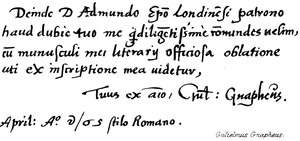 Deinde D Admundo Epo Londinẽsi patrono
haud dubie tuo me q̃ diligẽtissime cõmundes uelim,
cũ munusculi mei literarij officiosa oblatione
uti ex inscriptione mea uidetur,
Tuus ex aĩo, Guil: Gnapheus.
April: Aº stilo Romano.
Gulielmus Gnapheus.